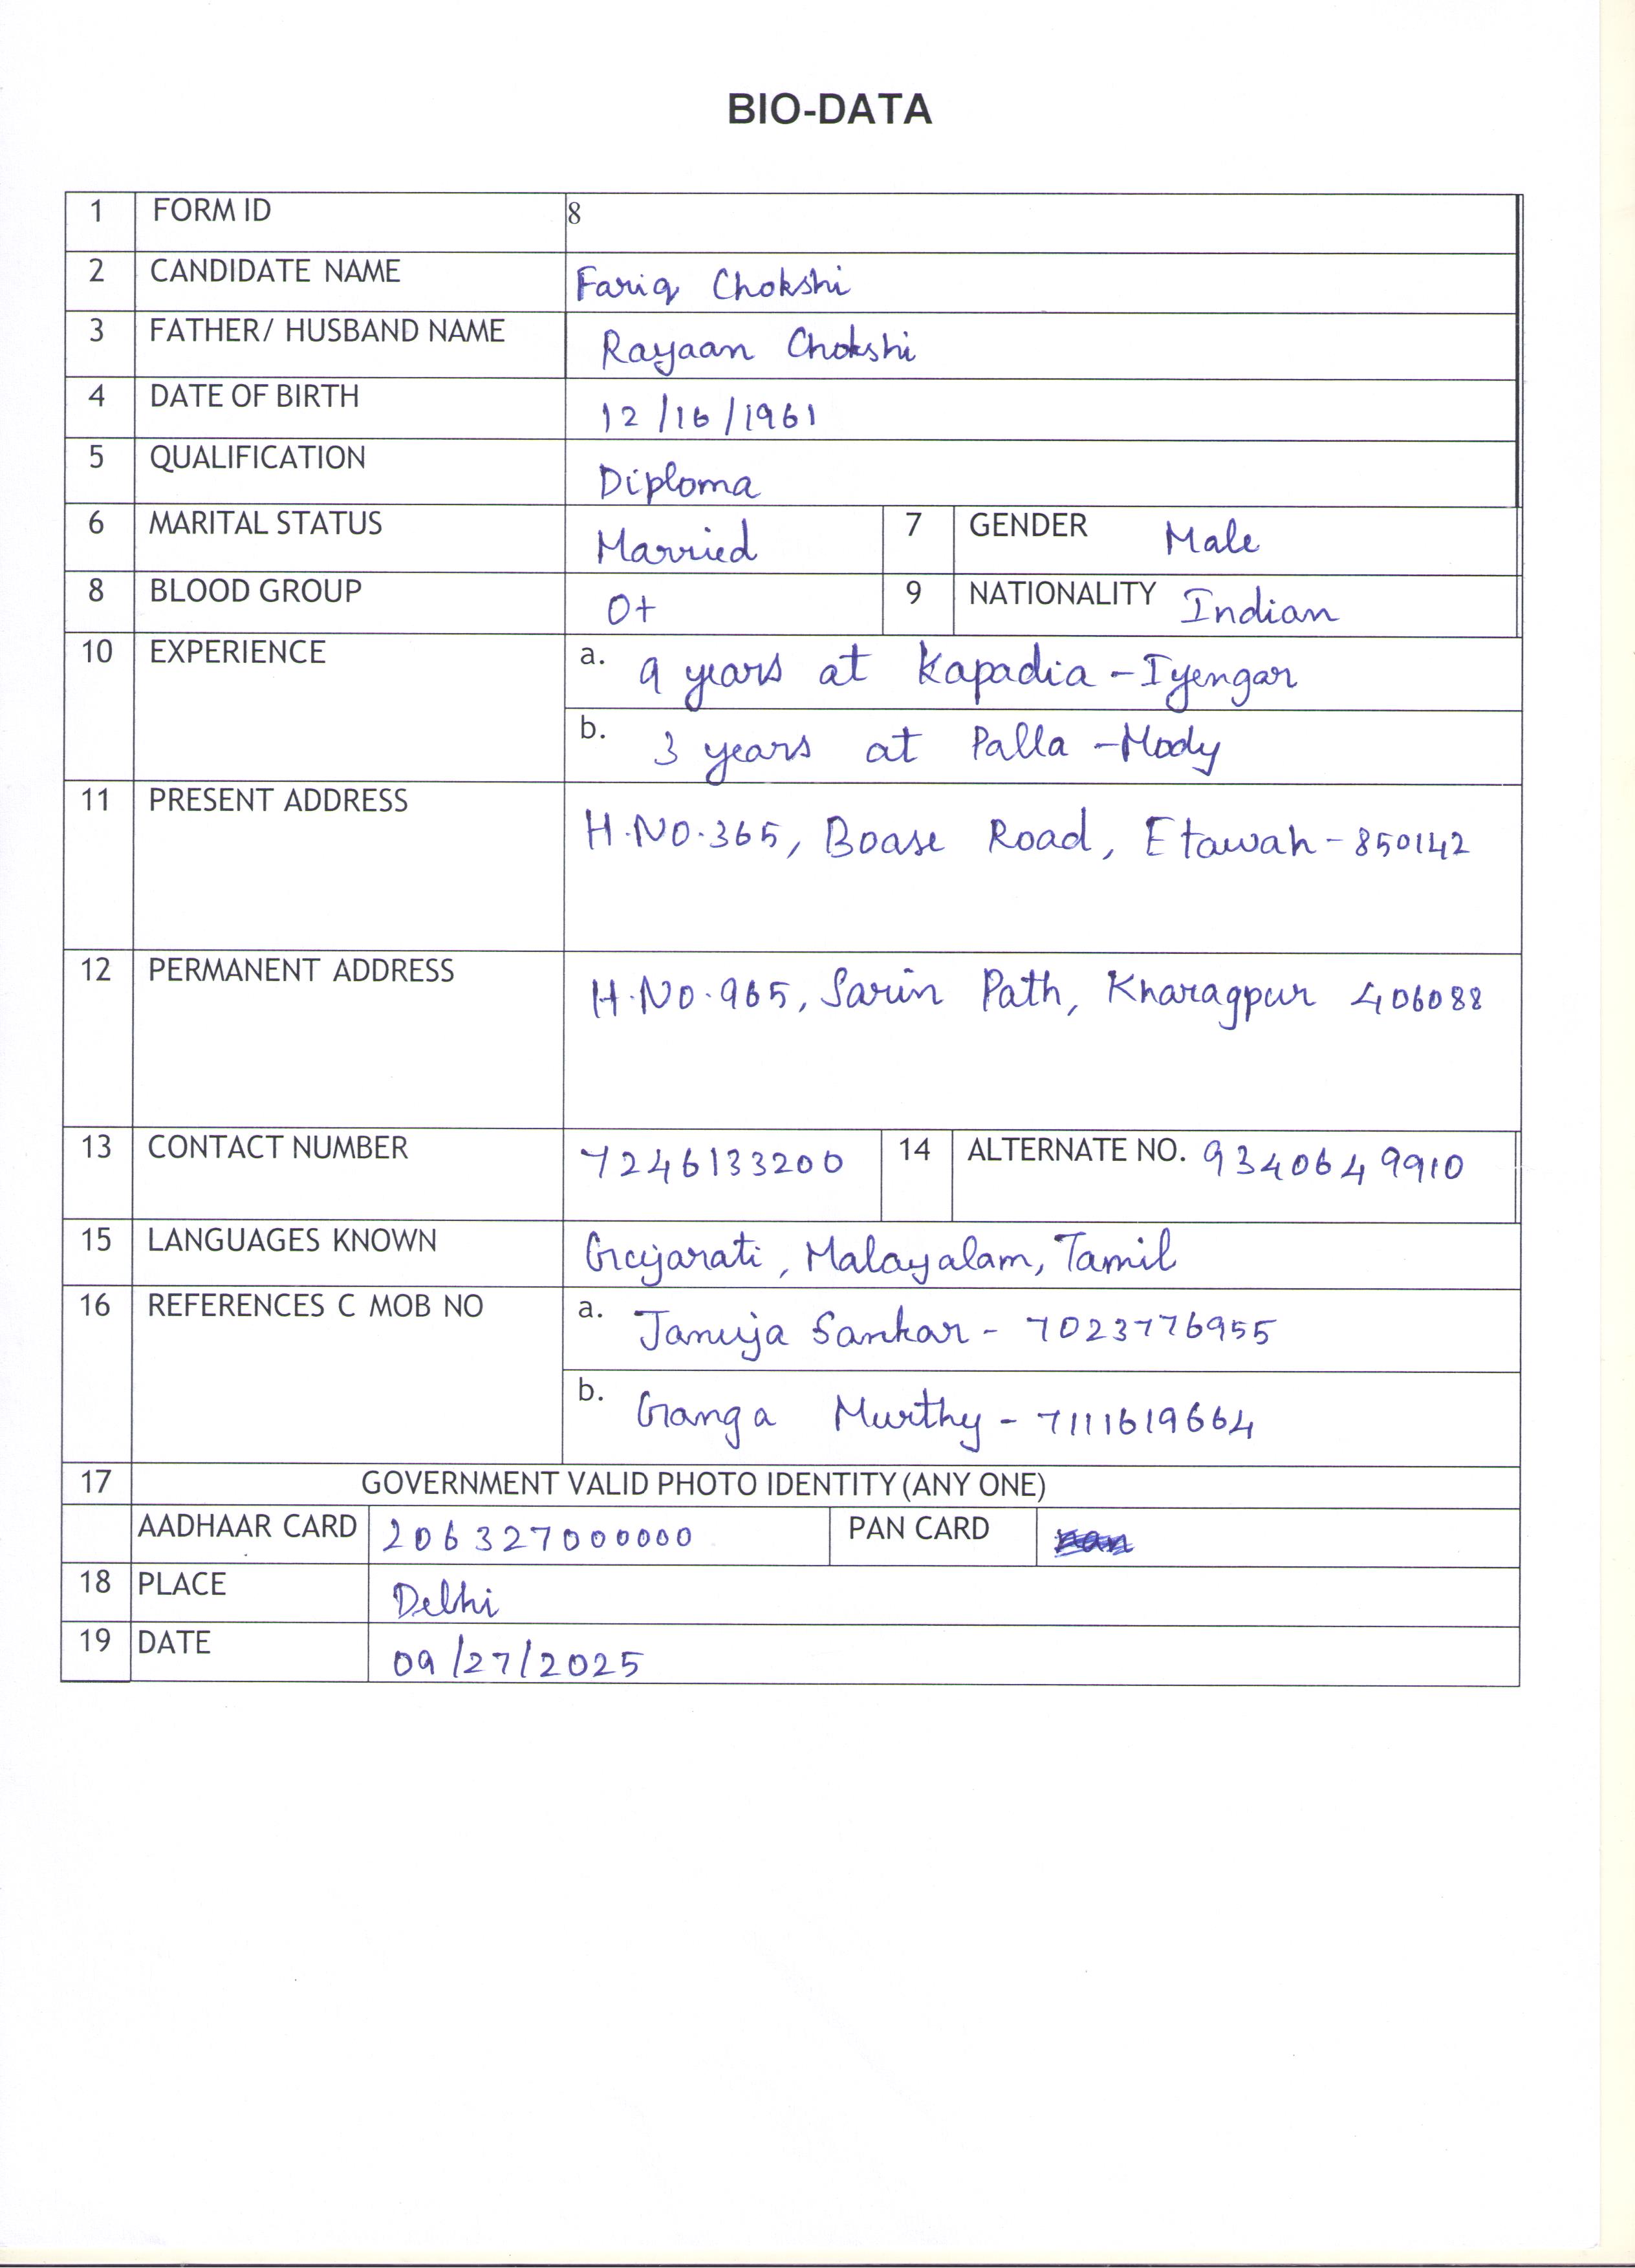 BIO-DATA
1 FORM ID 8
2 CANDIDATE NAME Fariq Chokshi
3 FATHER/ HUSBAND NAME Rayaan Chokshi
4 DATE OF BIRTH 12/16/1961
5 QUALIFICATION Diploma
6 MARITAL STATUS Married 7 GENDER Male
8 BLOOD GROUP O+ 9 NATIONALITY Indian
10 EXPERIENCE a. 9 years at Kapadia-Iyengar
b. 3 years at Palla-Mody
11 PRESENT ADDRESS H.NO.365, Boase Road, Etawah-850142
12 PERMANENT ADDRESS H.NO.965, Sarin Path, Kharagpur 406088
13 CONTACT NUMBER 7246133200 14 ALTERNATE NO. 9340649910
15 LANGUAGES KNOWN Gujarati, Malayalam, Tamil
16 REFERENCES C MOB NO a. Januja Sankar- 7023776955
b. Ganga Murthy- 7111619664
17 GOVERNMENT VALID PHOTO IDENTITY (ANY ONE)
AADHAAR CARD 206327000000 PAN CARD
18 PLACE Delhi
19 DATE 09/27/2025